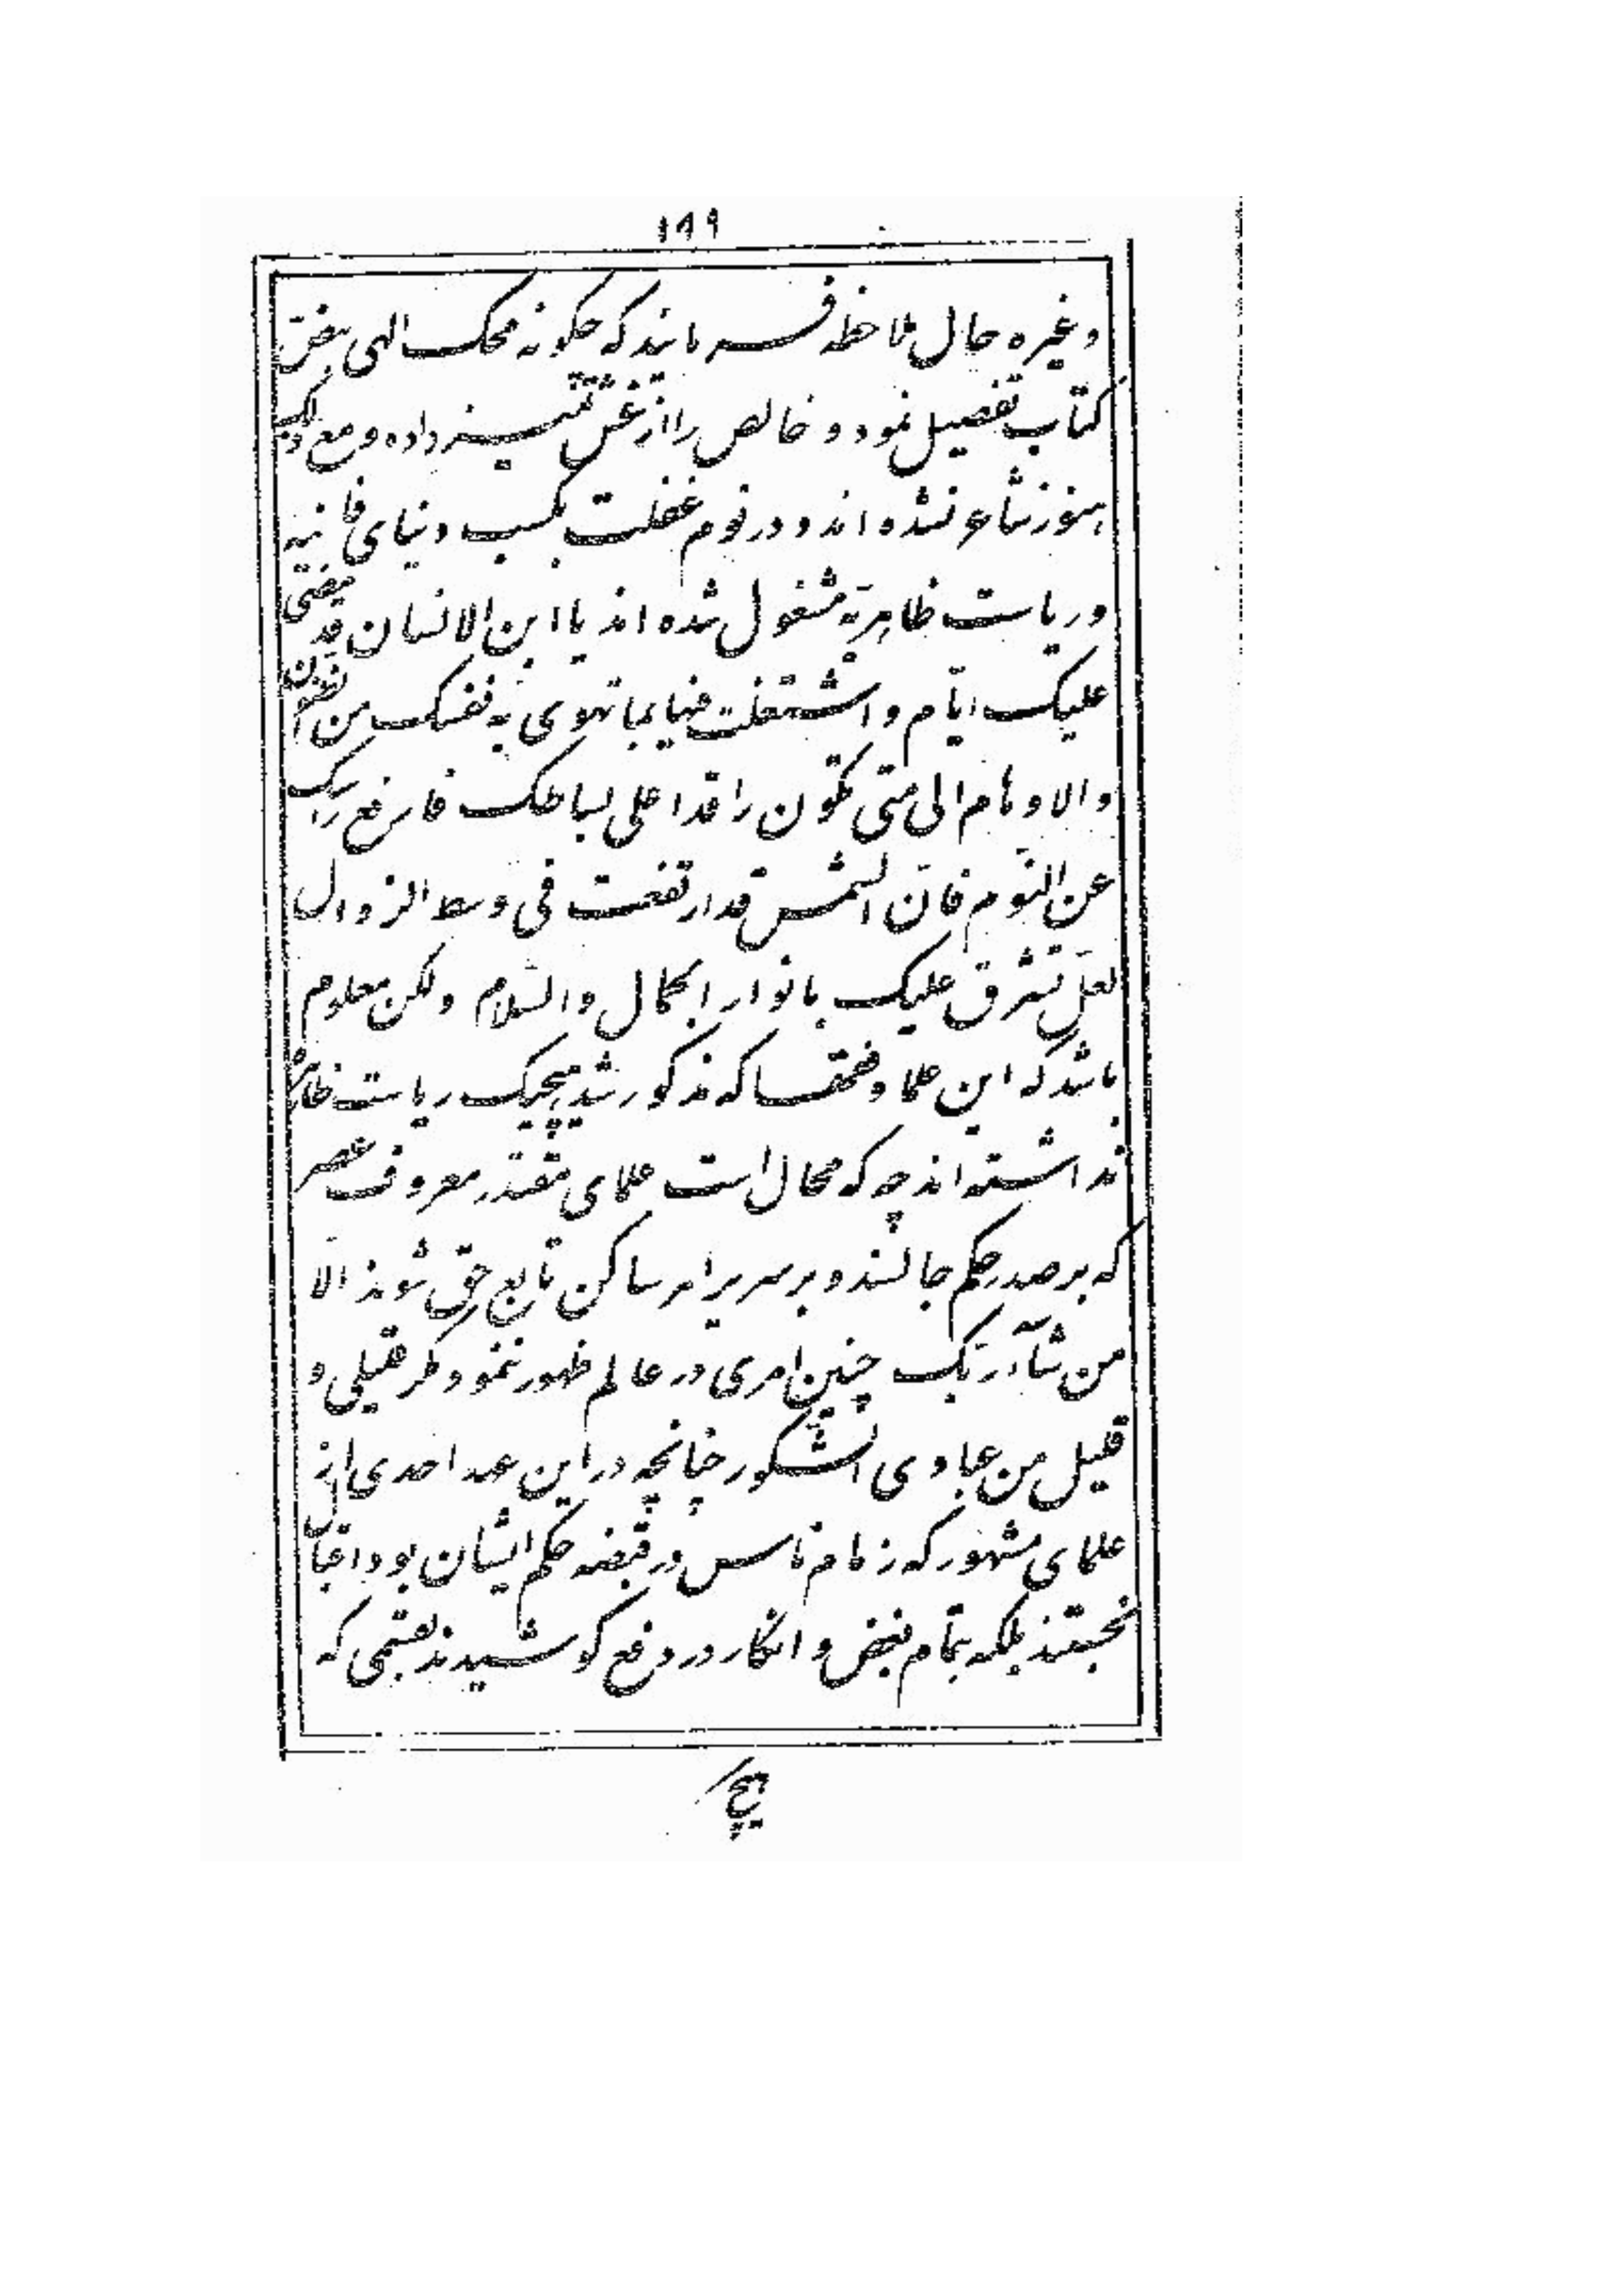 ۱۸۹
و غیره حال ملاحظه فرمایند که چکونه محک الهی بنصّ
کتاب تفصیل نمود و خالص را از غش تمییز داده و مع ذلک
هنوز شاعر نشده اند و در نوم غفلت بکسب دنیای فانیه
و ریاست ظاهریّه مشغول شده اند یا ابن الانسان قد مضی
علیک ایّام و اشتغلت فیها بما تهوی به نفسک من الظنون
و الاوهام الی متی تکون راقدا علی بساطک فارفع راسک
عن النّوم فانّ الشّمس قد ارتفعت فی وسط الزوال
لعلّ تشرق علیک بانوار الجمال والسّلام ولکن معلوم
باشد که این علما و فقها که مذکور شد هیچیک ریاست ظاهره
نداشته اند چه که محال است علمای مقتدر معروف عصر
که بر صدر حکم جالسند و بر سریر امر ساکن تابع حق شوند الّا
من شآء ربّک چنین امری در عالم ظهور ننمود مکر قلیلی و
قلیل من عبادی الشکور چنانچه در این عهد احدی از
علمای مشهور که زمام ناس در قبضه حکم ایشان بود اقبال
نجستند بلکه بتمام بغض و انکار در دفع کوشیدند بقسمی که
هیچ